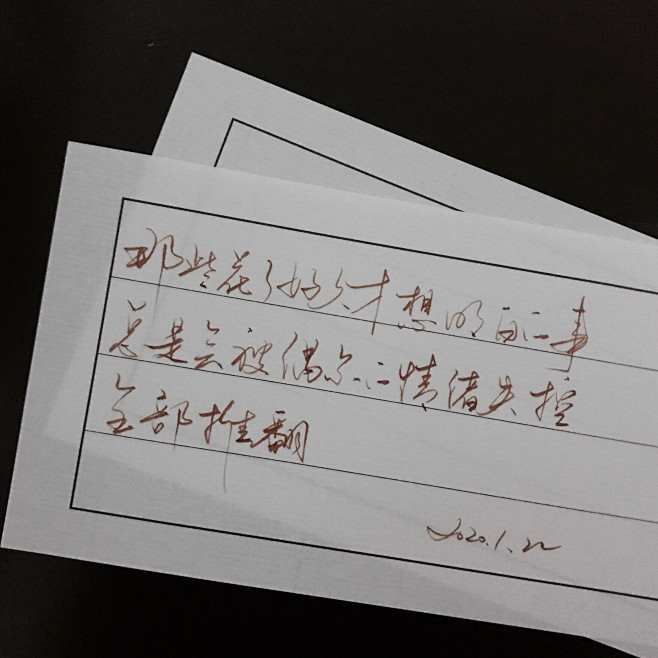 那些花了好久才想明白的事
总是会被偶尔的情绪失控
全部推翻
2020.1.22